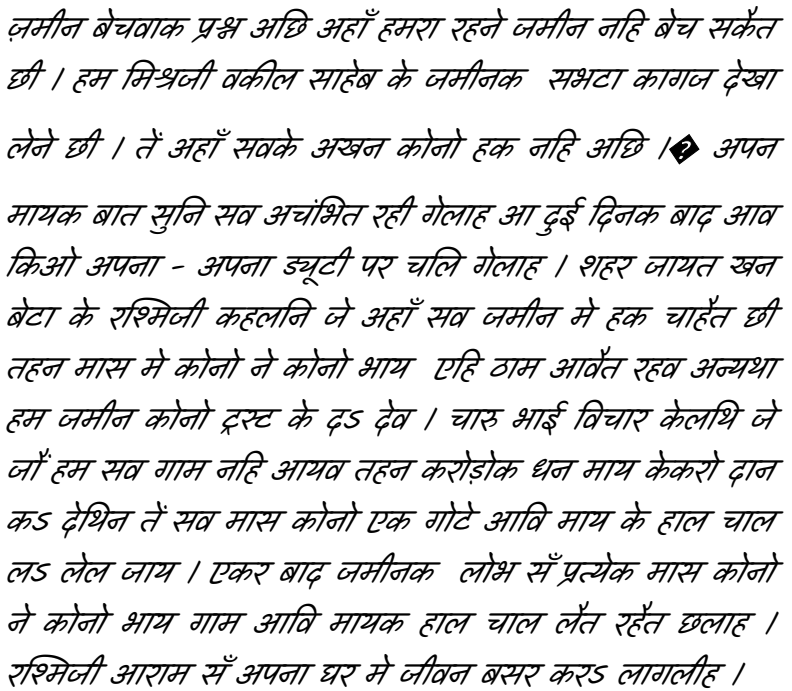 ज़मीन बेचवाक प्रश्न अछि अहाँ हमरा रहने जमीन नहि बेच सकैत
छी । हम मिश्रजी वकील साहेब के जमीनक सभटा कागज देखा
लेने छी । तें अहाँ सवके अखन कोनो हक नहि अछि ।� अपन
मायक बात सुनि सव अचंभित रही गेलाह आ दुई दिनक बाद आव
किओ अपना - अपना ड्यूटी पर चलि गेलाह । शहर जायत खन
बेटा के रश्मिजी कहलनि जे अहाँ सव जमीन मे हक चाहैत छी
तहन मास मे कोनो ने कोनो भाय एहि ठाम आवैत रहव अन्यथा
हम जमीन कोनो ट्रस्ट के दऽ देव । चारु भाई विचार केलथि जे
जौं हम सव गाम नहि आयव तहन करोड़ोक धन माय केकरो दान
कऽ देथिन तें सव मास कोनो एक गोटे आवि माय के हाल चाल
लऽ लेल जाय । एकर बाद जमीनक लोभ सँ प्रत्येक मास कोनो
ने कोनो भाय गाम आवि मायक हाल चाल लैत रहैत छलाह ।
रश्मिजी आराम सँ अपना घर मे जीवन बसर करऽ लागलीह ।